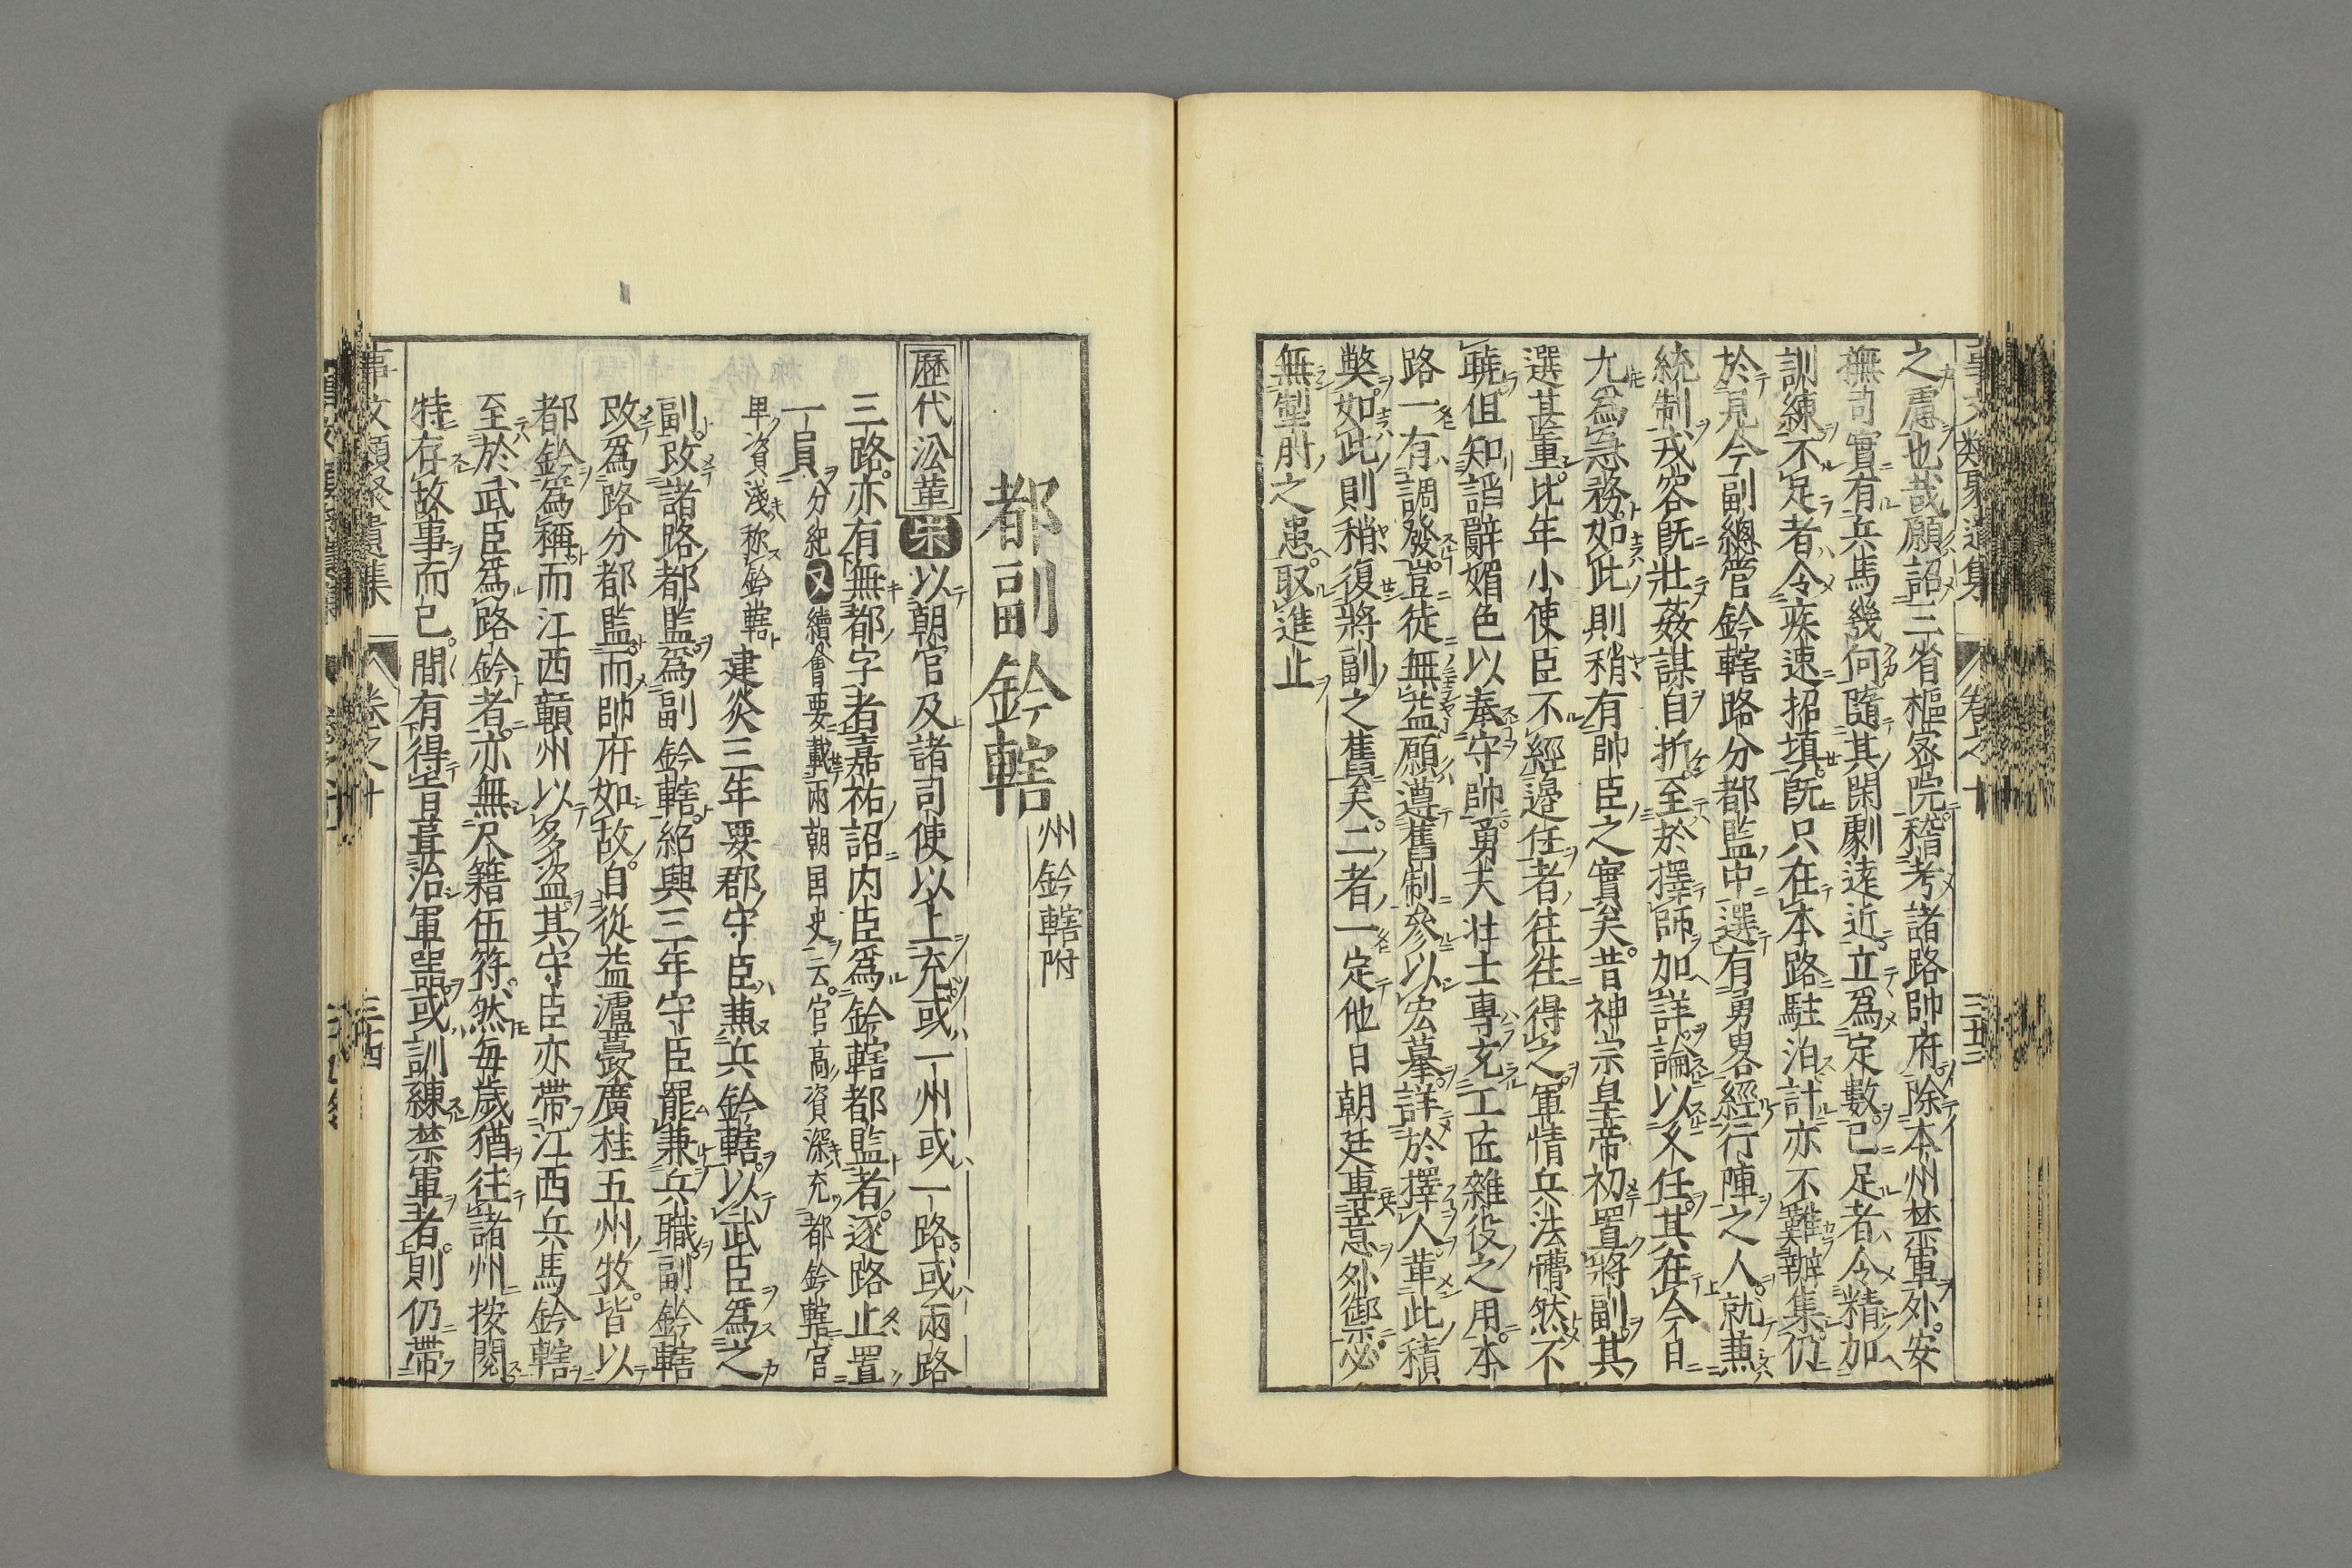 之慮也哉願詔三省樞密院稽考諸路帥府除本州禁軍外安
撫司實有兵馬幾何隨其閑劇遠近立爲定數已足者令精加
訓練不足者令疾速招塡旣只在本路駐泊計亦不難辦集仍
於見今副總管鈐轄路分都監中選有勇畧經行陣之人就兼
統制戎容旣壯姦謀自折至於擇師加詳論以久任其在今日
尤爲急務如此則稍有帥臣之實矣昔神宗皇帝初置將副其
選甚重比年小使臣不經邊任者往往得之軍情兵法懵然不
曉但知謟辭媚色以奉守帥勇夫壯士專充工匠雜役之用本
路一有調發豈徒無益願遵舊制參以宏摹詳於擇人革此積
獘如此則稍復將副之舊矣二者一定他日朝廷專意外禦必
無掣肘之患取進止
都副鈐轄
州鈐轄附
歷代沿革宋以朝官及諸司使以上充或一州或一路或兩路
三路亦有無都字者嘉祐詔内臣爲鈐轄都監者逐路止置
一員分紀又續會要載兩朝国史云官高資深充都鈐轄官
卑資淺称鈐轄建炎三年要郡守臣兼兵鈐轄以武臣爲之
副改諸路都監爲副鈐轄紹興三年守臣罷兼兵職副鈐轄
改爲路分都監而帥府如故自從益瀘夔廣桂五州牧皆以
都鈐爲稱而江西贛州以多盜其守臣亦帶江西兵馬鈐轄
至於武臣爲路鈐者亦無尺籍伍符然每歲猶往諸州按閱
特存故事而已間有得旨葺治軍噐或訓練禁軍者則仍帶
事文類聚遺集 卷之十 三十四